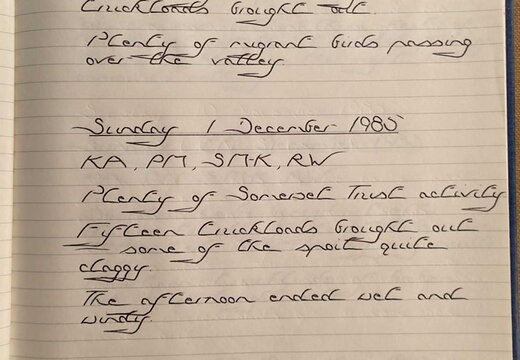 Truckloads brought out.
Plenty of migrant birds passing
over the valley.
Sunday 1 December 1985
KA, PM, SM-K, RW
Plenty of Somerset Trust activity
Fifteen truckloads brought out
– some of the spoil quite
claggy.
The afternoon ended wet and
windy.